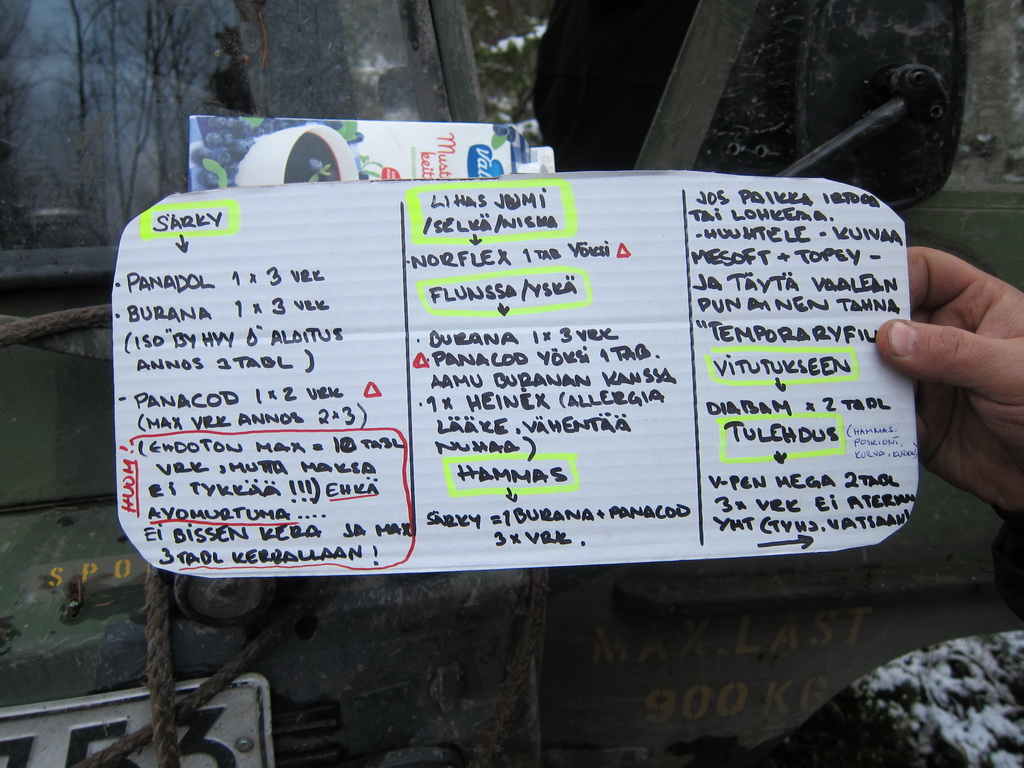 Must
keit
Valio
SÄRKY
- PANADOL 1 x 3 VRK
- BURANA 1 x 3 VRK
(ISO "BY HVV Ö" ALOITUS
ANNOS 2 TABL)
- PANACOD 1 x 2 VRK
(MAX VRK ANNOS 2x3)
HUOM!
(EHDOTON MAX = 10 TABL
VRK, MUTTA MAKSA
EI TYKKÄÄ !!!) EHKÄ
AVOHURTUMA ....
EI BISSEN KERA JA MAX
3 TABL KERRALLAAN!
LIHAS JUMI
/SELKÄ/NISKA
- NORFLEX 1 TAB YÖKSI
FLUNSSA/YSKÄ
- BURANA 1 x 3 VRK
PANACOD YÖKSI 1 TAB.
AAMU BURANAN KANSSA
- 1 x HEINEX (ALLERGIA
LÄÄKE, VÄHENTÄÄ
NUHAA)
HAMMAS
SÄRKY = 1 BURANA + PANACOD
3 x VRK.
JOS PAIKKA IRTOAA
TAI LOHKEAA.
- HUUHTELE - KUIVAA
MESOFT + TOPSY -
JA TÄYTÄ VAALEAN
PUNAINEN TAHNA
"TEMPORARYFIL
VITUTUKSEEN
DIAPAM x 2 TABL
TULEHDUS (HAMMAS,
POSKIONT,
KORVA, KURKKU)
V-PEN MEGA 2 TABL
3 x VRK EI ATERIAN
YHT (TYHJ. VATSAAN)
SPO
MAX. LAST
900 KG